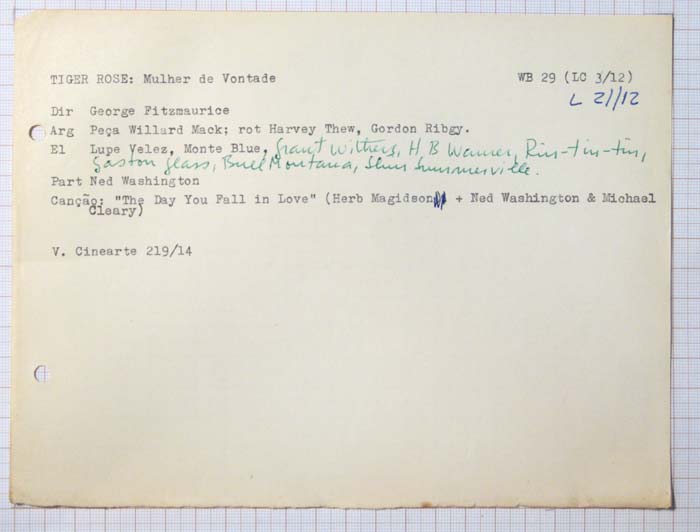 TIGER ROSE: Mulher de Vontade WB 29 (LC 3/12)
L 21/12
Dir George Fitzmaurice
Arg Peça Willard Mack; rot Harvey Thew, Gordon Ribgy.
El Lupe Velez, Monte Blue, Grant Withers, H B Warner, Rin-tin-tin,
Gaston Glass, Bull Montana, Slim Summerville.
Part Ned Washington
Canção: "The Day You Fall in Love" (Herb Magidson + Ned Washington & Michael
Cleary)
V. Cinearte 219/14